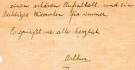 einen schönen Aufenthalt und ein
für immer
Es grüßt sie alle herzlich